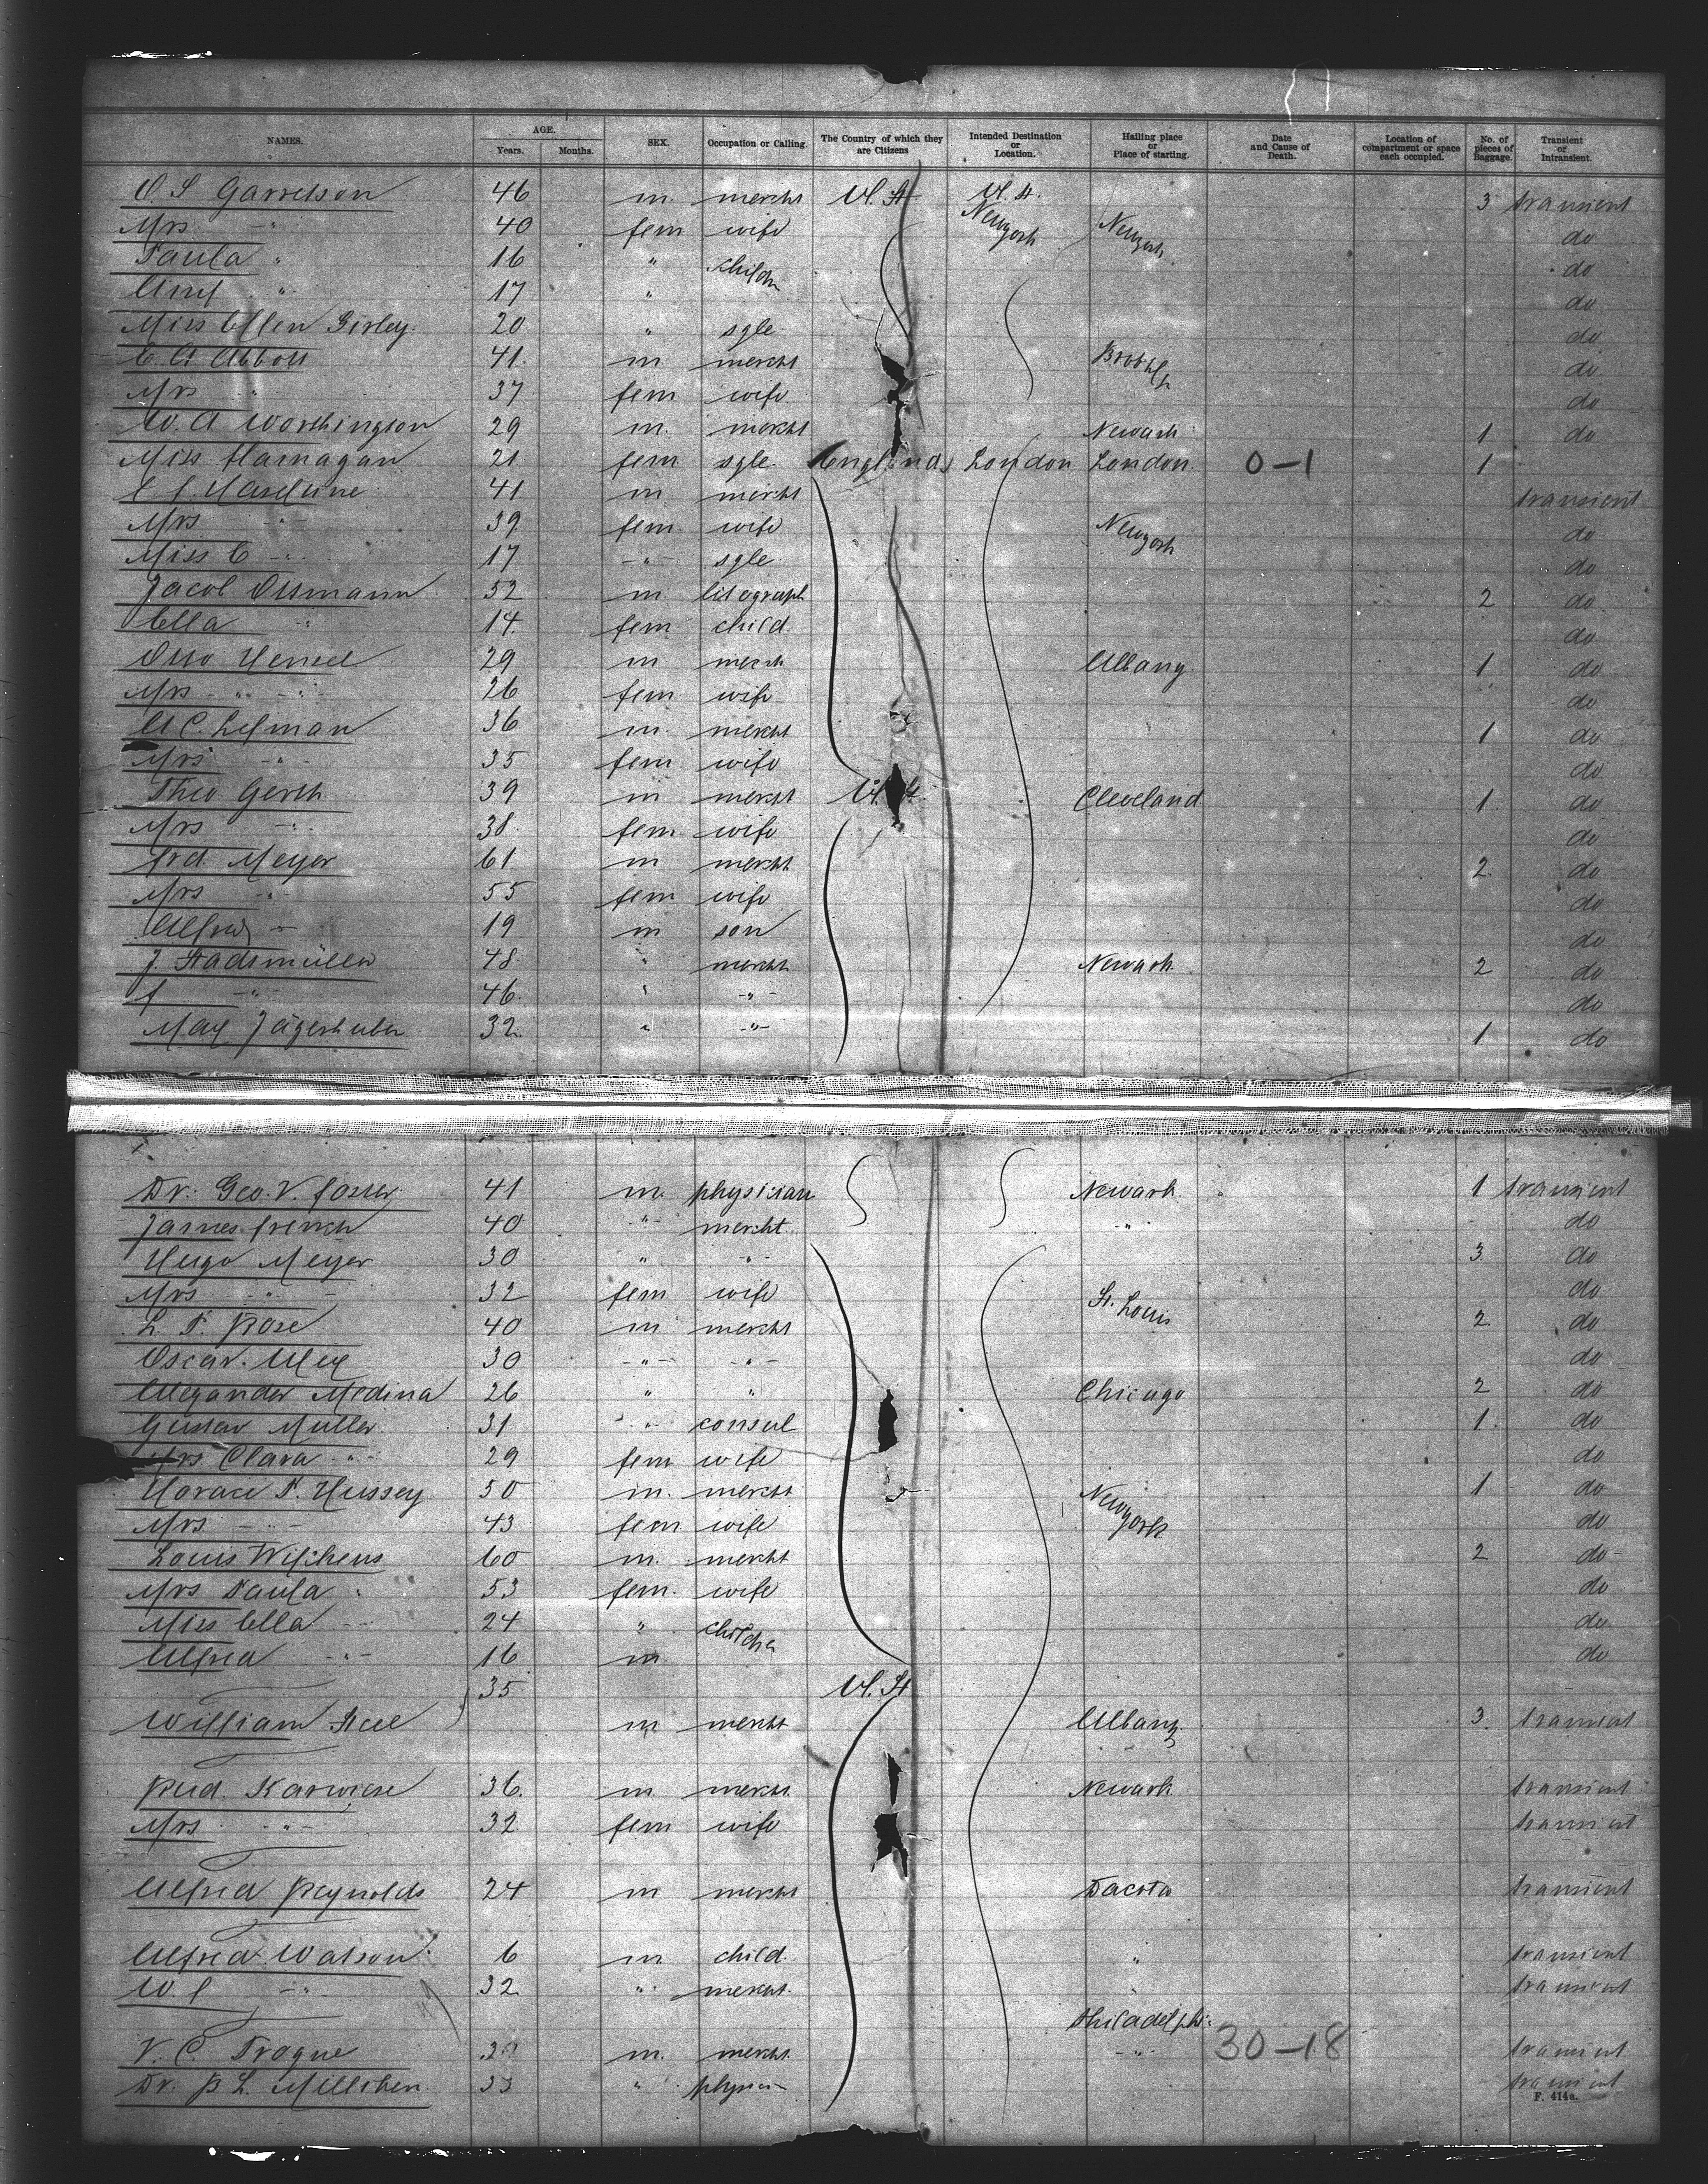 NAMES. AGE. Years. Months. SEX. Occupation or Calling. The Country of which they are Citizens Intended Destination or Location. Hailing place or Place of starting. Date and Cause of Death. Location of compartment or space each occupied. No. of pieces of Baggage. Transient or Intransient.
O. S Garretson 46 m. mercht U. St U. St. 3 transient
Mrs " 40 fem wife Newyork Newyork do
Paula " 16 " childn do
" 17 " do
Miss Ellen Girley. 20 " sgle do
C. A Abbott 41. m mercht Brookln do
Mrs " 37 fem wife do
W. A Worthington 29 m. mercht Newark 1 do
Miss Flamagan 21 fem sgle England London London 0-1 1
41 m mercht transient
Mrs -"- 39 fem wife Newyork do
Miss C -"- 17 -"- sgle do
Jacob Ottmann 52 m litograph 2 do
Ella " 14 fem child. do
Otto Hensel 29 m merch Albany 1 do
Mrs -"- 26 fem wife do
A C. Lehman 36 m. mercht 1 do
Mrs -"- 35 fem wife do
Theo Gerth 39 m mercht U. St. Cleveland 1 do
Mrs -"- 38 fem wife do
Frd Meyer 61 m mercht 2 do
Mrs -"- 55 fem wife do
Alfred " 19 m son do
J. Stadtmüller 48 " mercht Newark 2 do
F -"- 46. " -"- do
Max Jägerhuber 32 " -"- 1 do
Dr. Geo. V. Foster 41 m. physician Newark 1 transient
James French 40 " mercht. -"- do
Hugo Meyer 30 " -"- 3 do
Mrs -"- 32 fem wife St. Louis do
L. P. Rose 40 m mercht 2 do
Oscar 30 -"- -"- do
Alexander Medina 26 " " Chicago 2 do
Gustav Muller 31 " consul 1. do
Mrs Clara -"- 29 fem wife do
Horace P. Hussey 50 m. mercht Newyork 1 do
Mrs -"- 43 fem wife do
Louis Wilckens 60 m. mercht 2 do
Mrs Paula " 53 fem. wife do
Miss Ella -"- 24 " childrn do
Alfred -"- 16 m do
35 U. St
William Steel m mercht Albany 3. transient
Rud. Karwiese 36. m mercht. Newark transient
Mrs -"- 32 fem wife transient
Alfred Reynolds 24 m mercht Dacota transient
Alfred Watson 6 m child. " transient
W. F -"- 32 " mercht. transient
Philadelphi
V. C. Trogue m. mercht. -"- 30-18 transient
Dr. B L. Milliken 33 " physici transient
F. 414a.